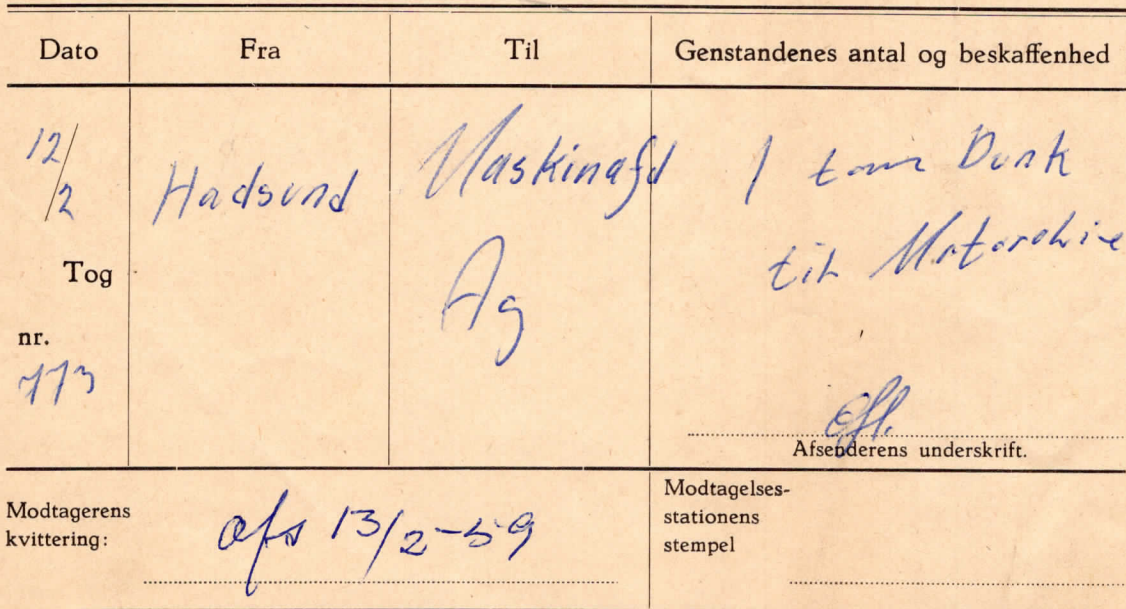 Dato Fra Til Genstandenes antal og beskaffenhed
12/2 Hadsund Maskinafd 1 tom Dunk
til
Tog Ag
nr.
773
Afsenderens underskrift.
Modtagerens kvittering: 13/2-59
Modtagelses-
stationens
stempel